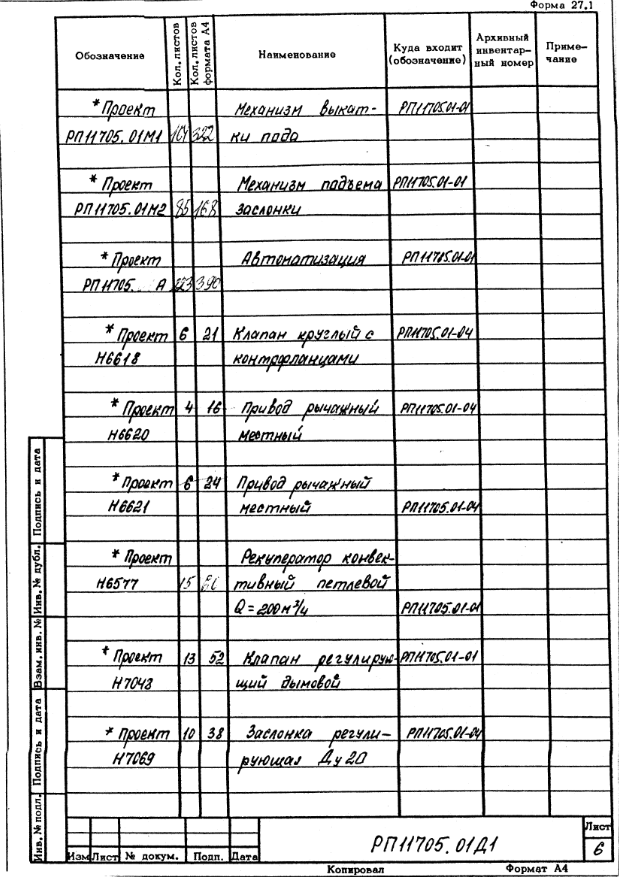 Форма 27.1
Обозначение Кол. листов Кол. листов формата А4 Наименование Куда входит (обозначение) Архивный инвентарный номер Примечание
* Проект Механизм выкат- РП11705.01-01
РП11705.01М1 104 322 ки пода
* Проект Механизм подъема РП11705.01-01
РП11705.01М2 85 168 заслонки
* Проект Автоматизация РП11705.01-01
РП11705. А 223 390
* Проект 6 21 Клапан круглый с РП11705.01-04
Н6618 контрфланцами
* Проект 4 16 Привод рычажный РП11705.01-04
Н6620 местный
* Проект 6 24 Привод рычажный
Н6621 местный РП11705.01-04
* Проект Рекуператор конвек-
Н6577 15 тивный петлевой
Q = 200 м³/ч РП11705.01-01
* Проект 13 52 Клапан регулирую- РП11705.01-01
Н7043 щий дымовой
* Проект 10 38 Заслонка регули- РП11705.01-04
Н7069 рующая Ду 20
Инв. № подл. Подпись и дата Взам. инв. № Инв. № дубл. Подпись и дата
РП11705.01Д1
Лист
6
Изм Лист № докум. Подп. Дата
Копировал Формат А4